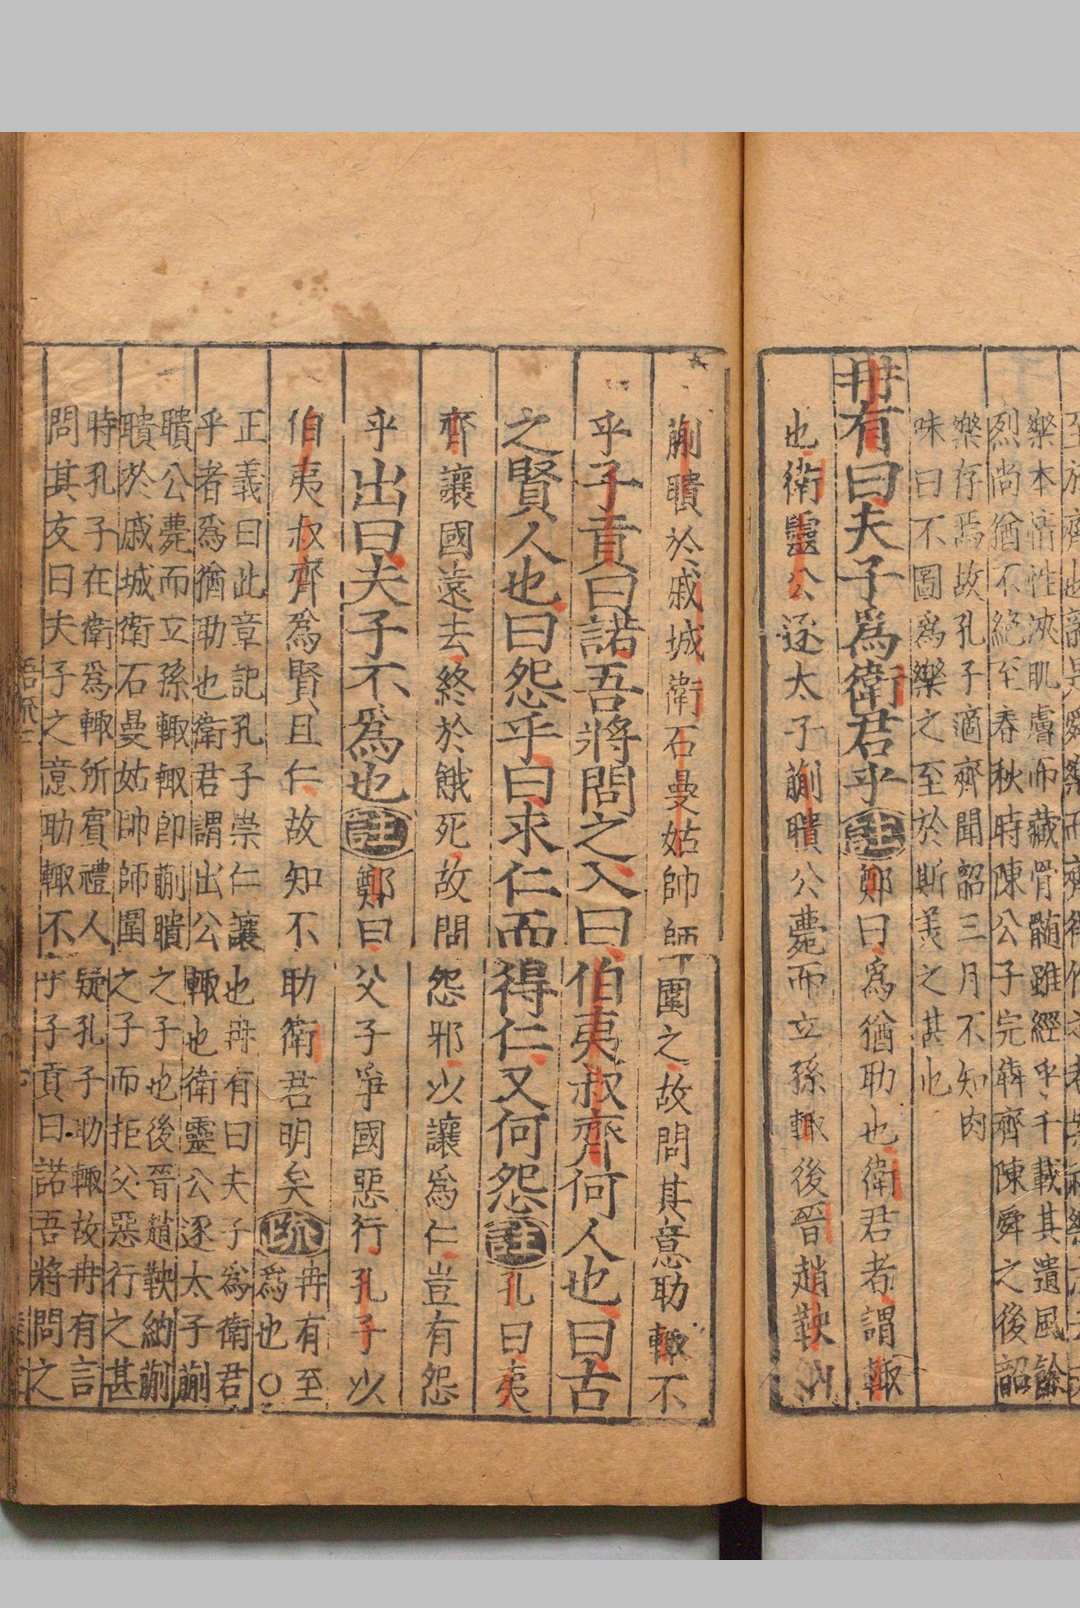 樂本情性浹肌膚而藏骨髓雖經乎千載其遺風餘
烈尚猶不絕至春秋時陳公子完犇齊陳舜之後韶
樂存焉故孔子適齊聞韶三月不知肉
味曰不圖爲樂之至於斯美之甚也
冉有曰夫子爲衛君乎註鄭曰爲猶助也衛君者謂輒
也衛靈公逐太子蒯聵公薨而立孫輒後晉趙鞅納
蒯聵於戚城衛石曼姑帥師圍之故問其意助輒不
乎子貢曰諾吾將問之入曰伯夷叔齊何人也曰古
之賢人也曰怨乎曰求仁而得仁又何怨註孔曰夷
齊讓國遠去終於餓死故問怨邪以讓爲仁豈有怨
乎出曰夫子不爲也註鄭曰父子爭國惡行孔子以
伯夷叔齊爲賢且仁故知不助衛君明矣疏冉有至
爲也○
正義曰此章記孔子崇仁讓也冉有曰夫子爲衛君
乎者爲猶助也衛君謂出公輒也衛靈公逐太子蒯
聵公薨而立孫輒輒即蒯聵之子也後晉趙鞅納蒯
聵於戚城衛石曼姑帥師圍之子而拒父惡行之甚
時孔子在衛爲輒所賓禮人疑孔子助輒故冉有言
問其友曰夫子之意助輒不乎子貢曰諾吾將問之